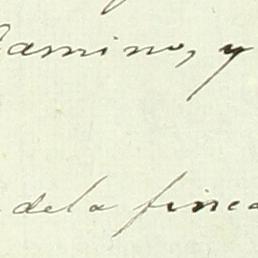 Camino, y
dela finca